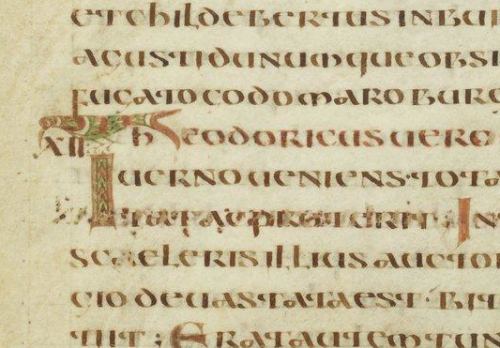 et childebertus in bu
acustidunumque obsi
fucato codomaro burc
XII Theodoricus uero
uerno ueniens · tota
ac proterit · In
sceleris illius auctor
cio deuastata est · bit
tiit ; Erat autem tun